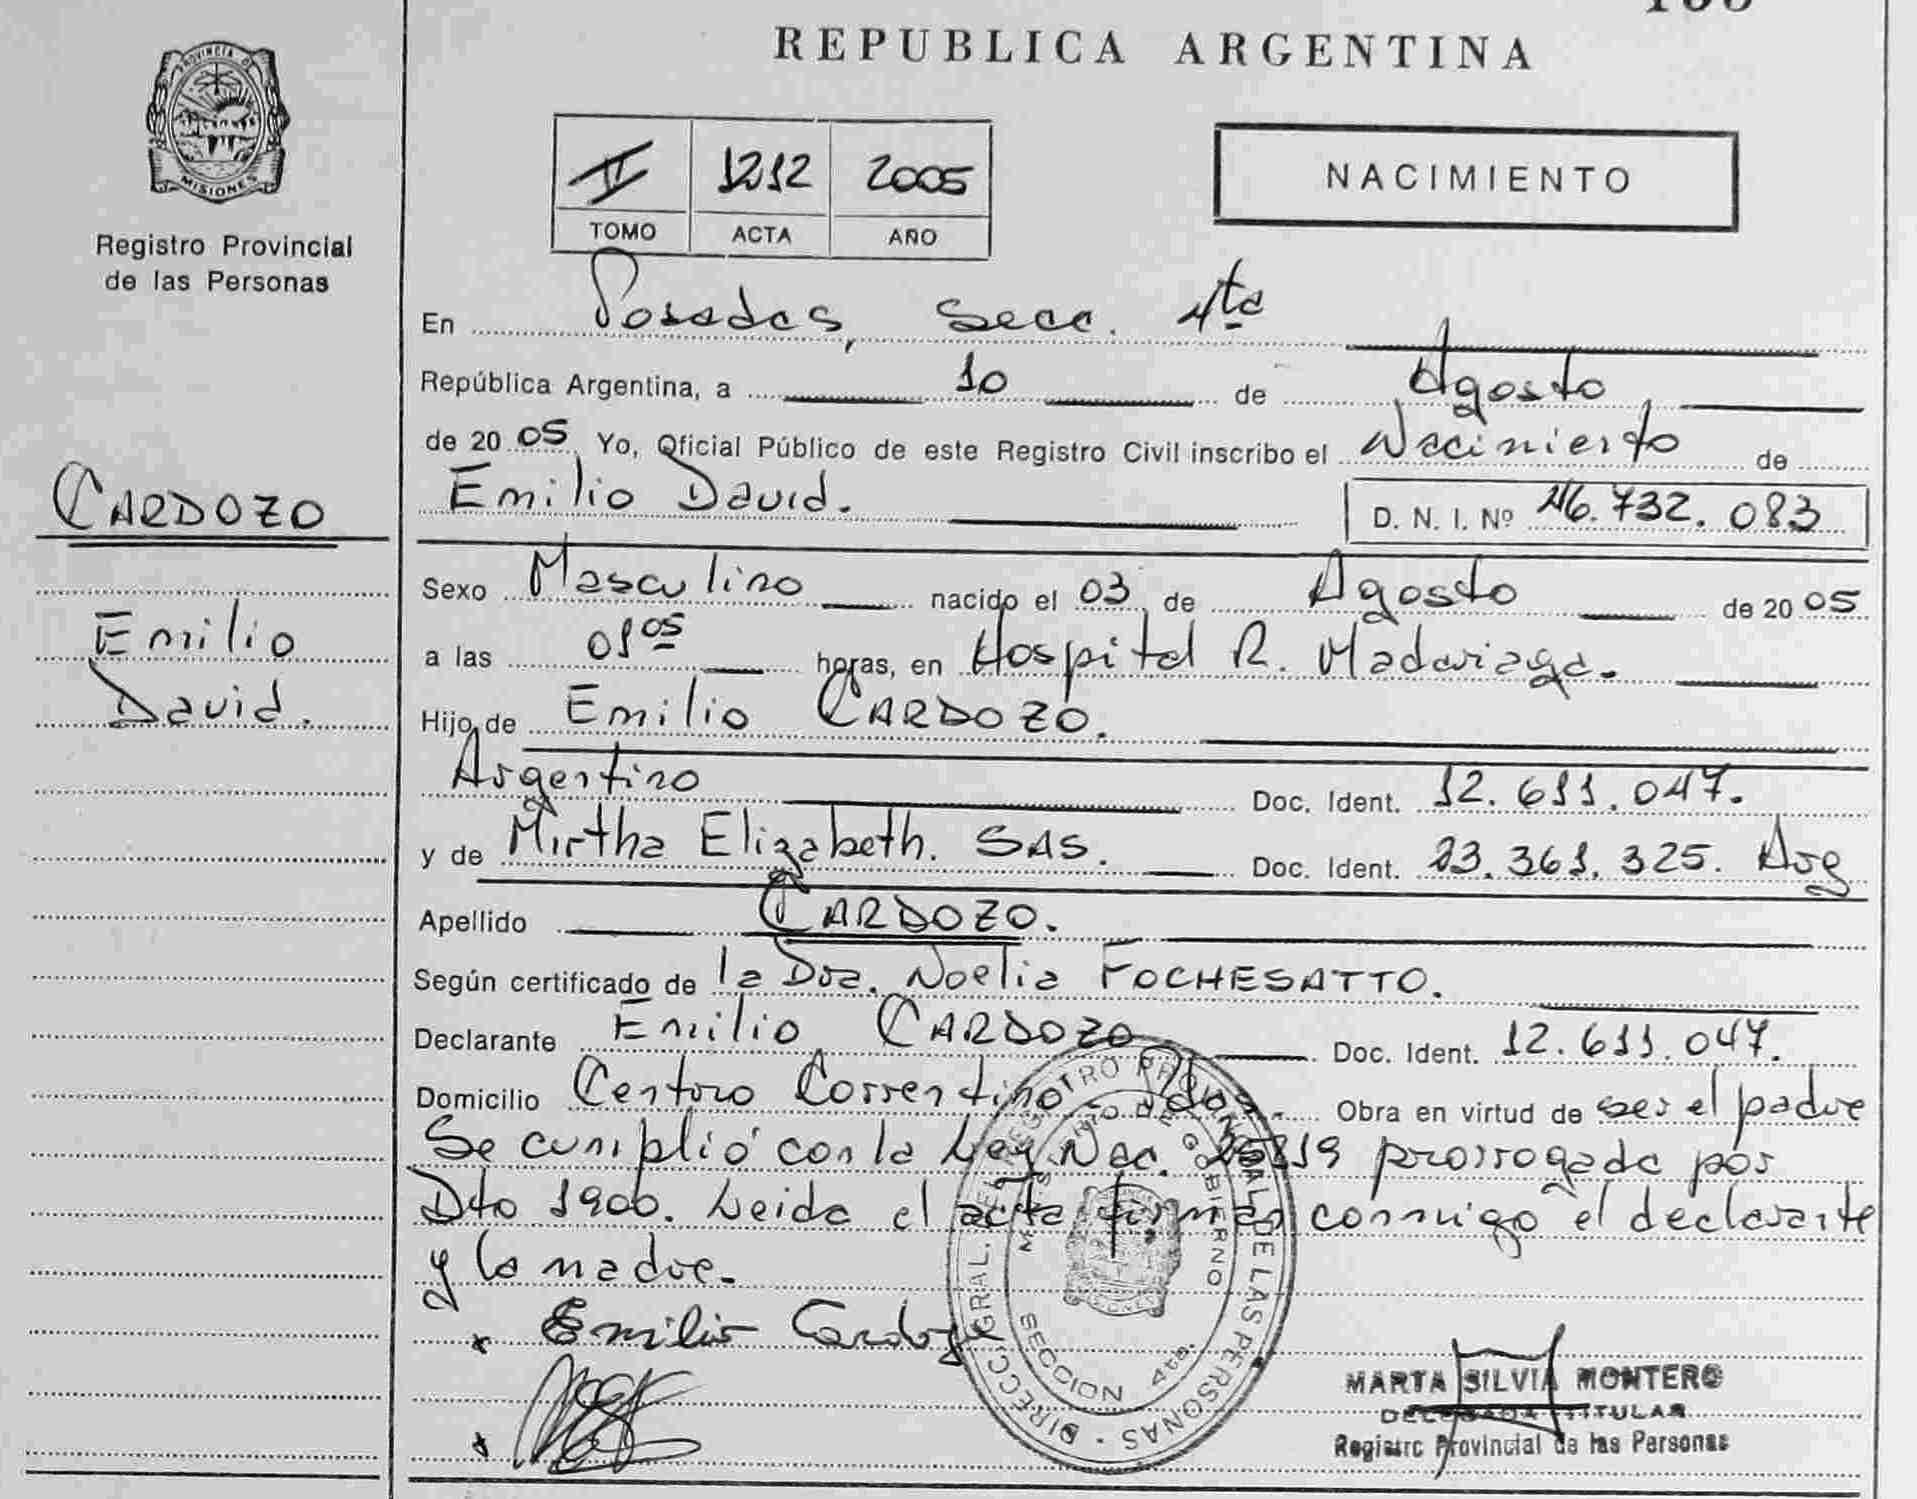 REPUBLICA ARGENTINA
PROVINCIA DE
MISIONES
Registro Provincial
de las Personas
II 1212 2005
TOMO ACTA AÑO
NACIMIENTO
En Posadas, Secc. 4ta
República Argentina, a 10 de Agosto
de 2005 Yo, Oficial Público de este Registro Civil inscribo el Nacimiento de
Emilio David. D. N. I. Nº 46.732.083
CARDOZO
Emilio
David.
Sexo Masculino nacido el 03 de Agosto de 2005
a las 01 05 horas, en Hospital R. Madariaga.
Hijo de Emilio CARDOZO.
Argentino Doc. Ident. 12.611.047.
y de Mirtha Elizabeth. SAS. Doc. Ident. 23.361.325. Arg
Apellido CARDOZO.
Según certificado de la Dra. Noelia FOCHESATTO.
Declarante Emilio CARDOZO Doc. Ident. 12.611.047.
Domicilio Centro Correntino Pdas. Obra en virtud de ser el padre
Se cumplió con la Ley Nac. prorrogada por
Dto 1906. Leida el acta firman conmigo el declarante
y la madre.
Emilio Cardozo
DIRECC. GRAL. DEL REGISTRO PROVINCIAL DE LAS PERSONAS
MINISTERIO DE GOBIERNO
SECCION 4ta.
MARTA SILVIA MONTERO
DELEGADA TITULAR
Registro Provincial de las Personas